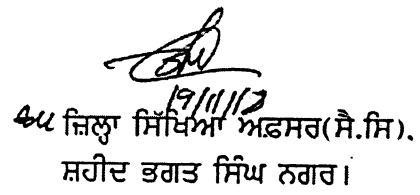 19/11/12
ਜ਼ਿਲ੍ਹਾ ਸਿੱਖਿਆ ਅਫ਼ਸਰ(ਸੈ.ਸਿ).
ਸ਼ਹੀਦ ਭਗਤ ਸਿੰਘ ਨਗਰ।